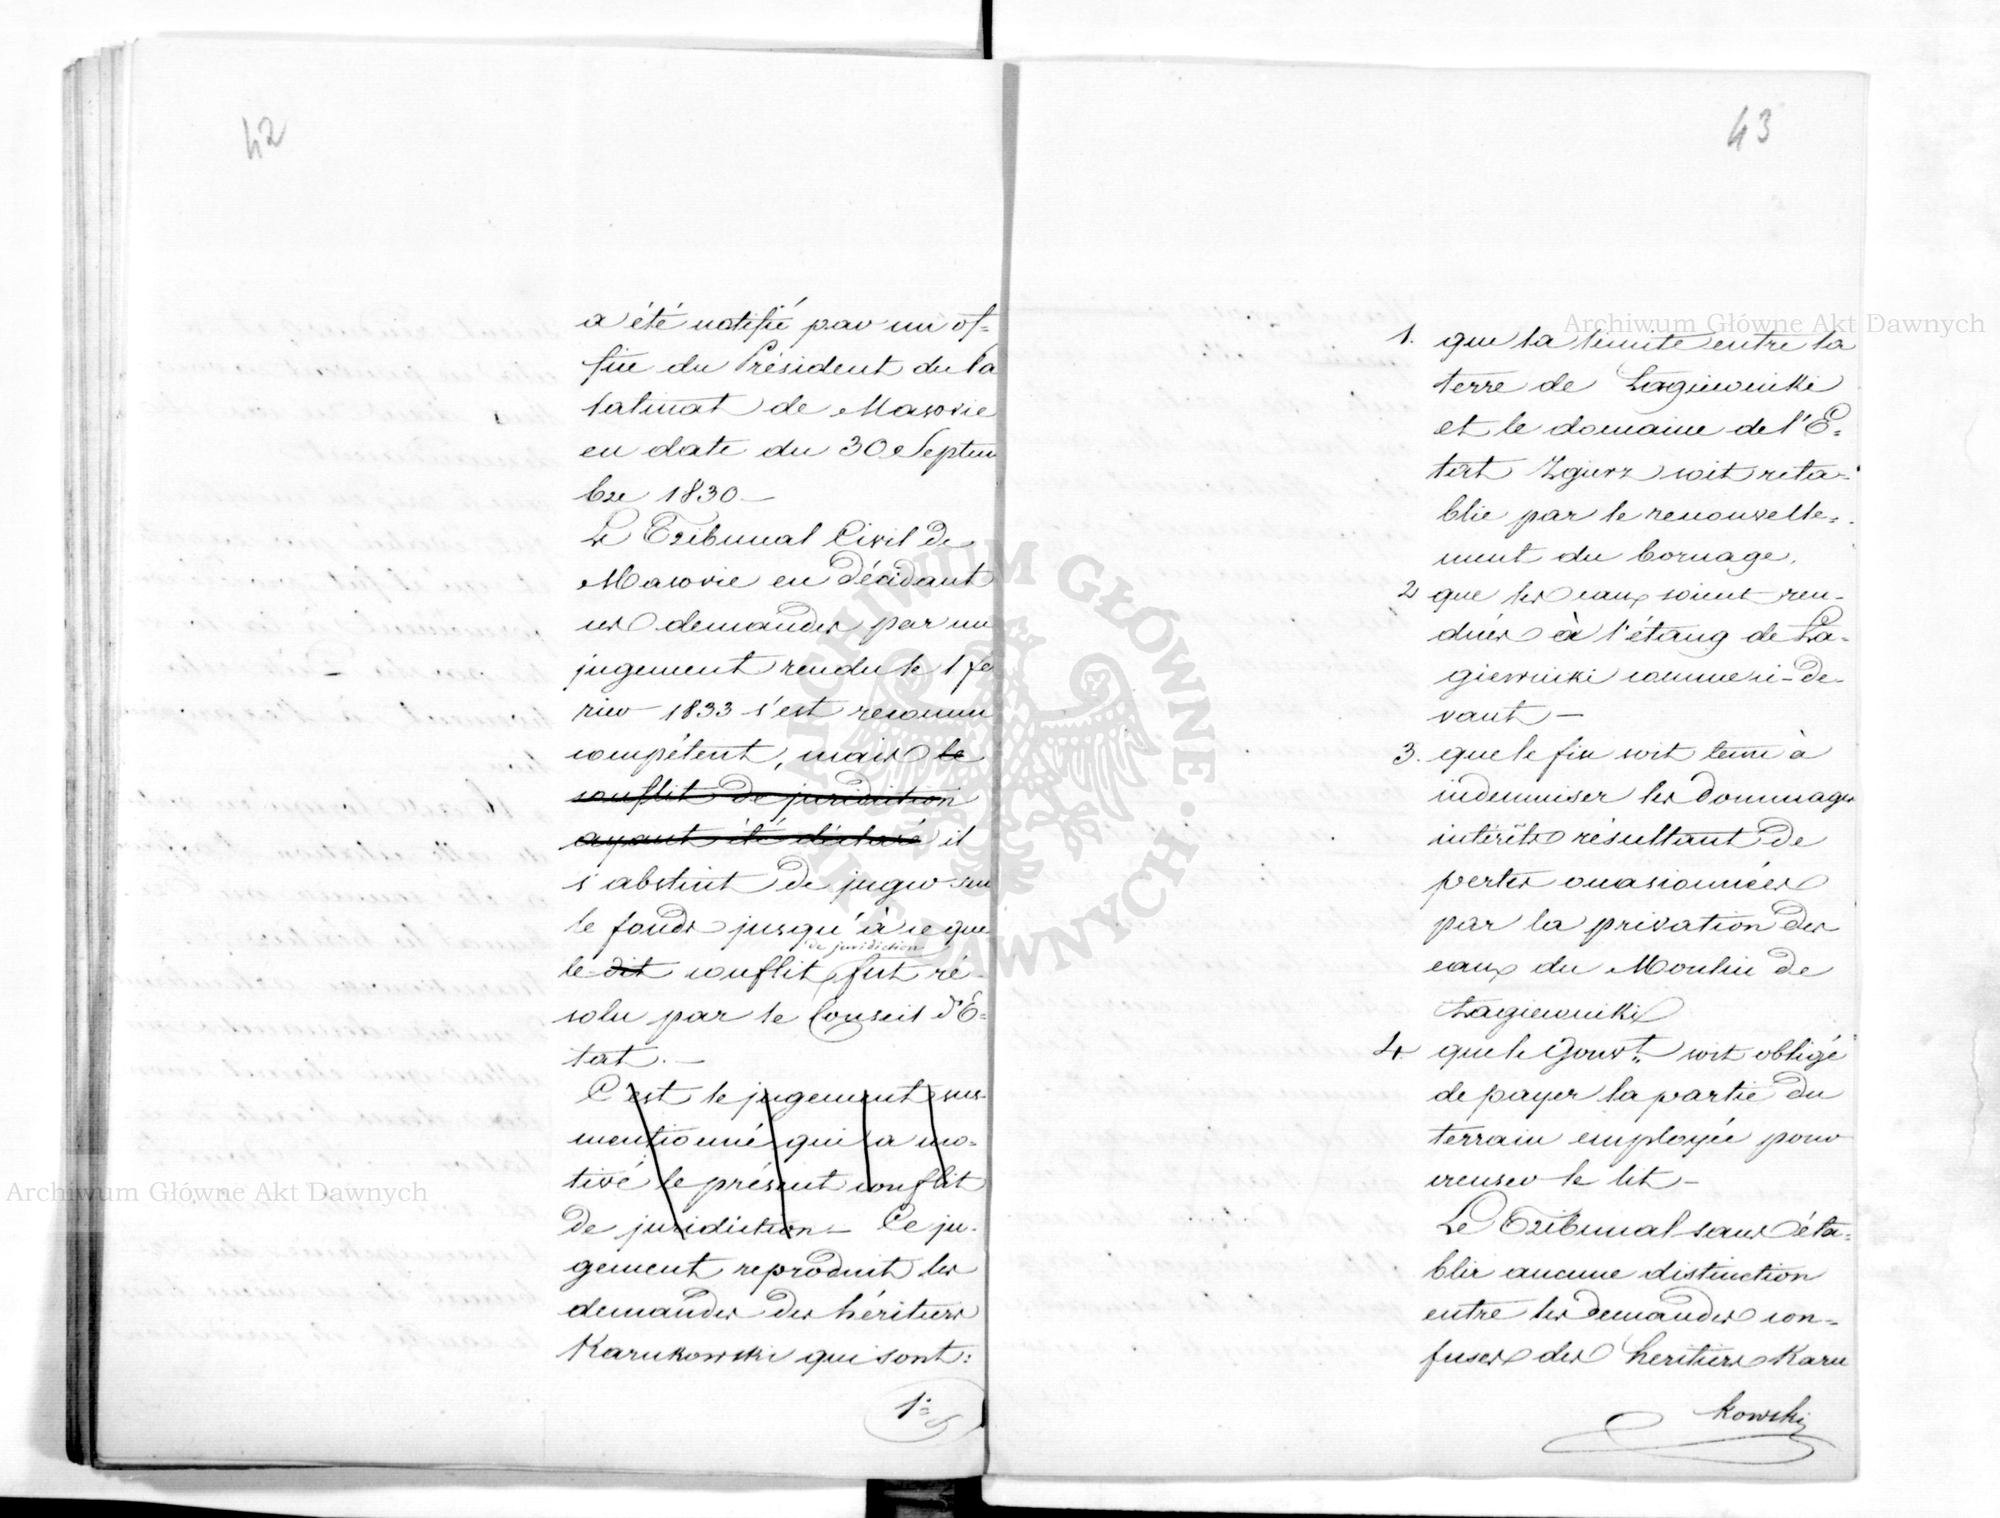 42
a été notifié par un of-
fice du Président du Pa
latinat de Masovie
en date du 30 Septem
bre 1830 —
Le Tribunal Civil de
Masovie en décidant
ces demandes par un
jugement rendu le 1 fé
vrier 1833 s'est reconnu
compétent, mais le
conflit de juridiction
ayant été déclaré il
s'abstint de juger sur
le fonds jusqu'à ce que
de juridiction
le dit conflit fut ré-
solu par le Conseil d'É-
tat. —
C'est le jugement sus-
mentionné qui a mo-
tivé le présent conflit
de juridiction — Ce ju-
gement reproduit les
demandes des héritiers
Karnkowski qui sont:
1°
43
1. que la limite entre la
terre de Łagiewniki
et le domaine de l'É-
tat Zgierz soit réta-
blie par le renouvelle-
ment du bornage.
2 que les eaux soient ren-
dues à l'étang de Ła-
giewniki comme ci-de-
vant —
3. que le fisc soit tenu à
indemniser les dommages
intérêts résultant de
pertes occasionnées
par la privation des
eaux du Moulin de
Łagiewniki
4. que le Gouvt. soit obligé
de payer la partie du
terrain employée pour
creuser le lit —
Le Tribunal sans éta-
blir aucune distinction
entre les demandes con-
fuses des heritiers Karn
kowski
Archiwum Główne Akt Dawnych
Archiwum Główne Akt Dawnych
ARCHIWUM GŁÓWNE AKT DAWNYCH